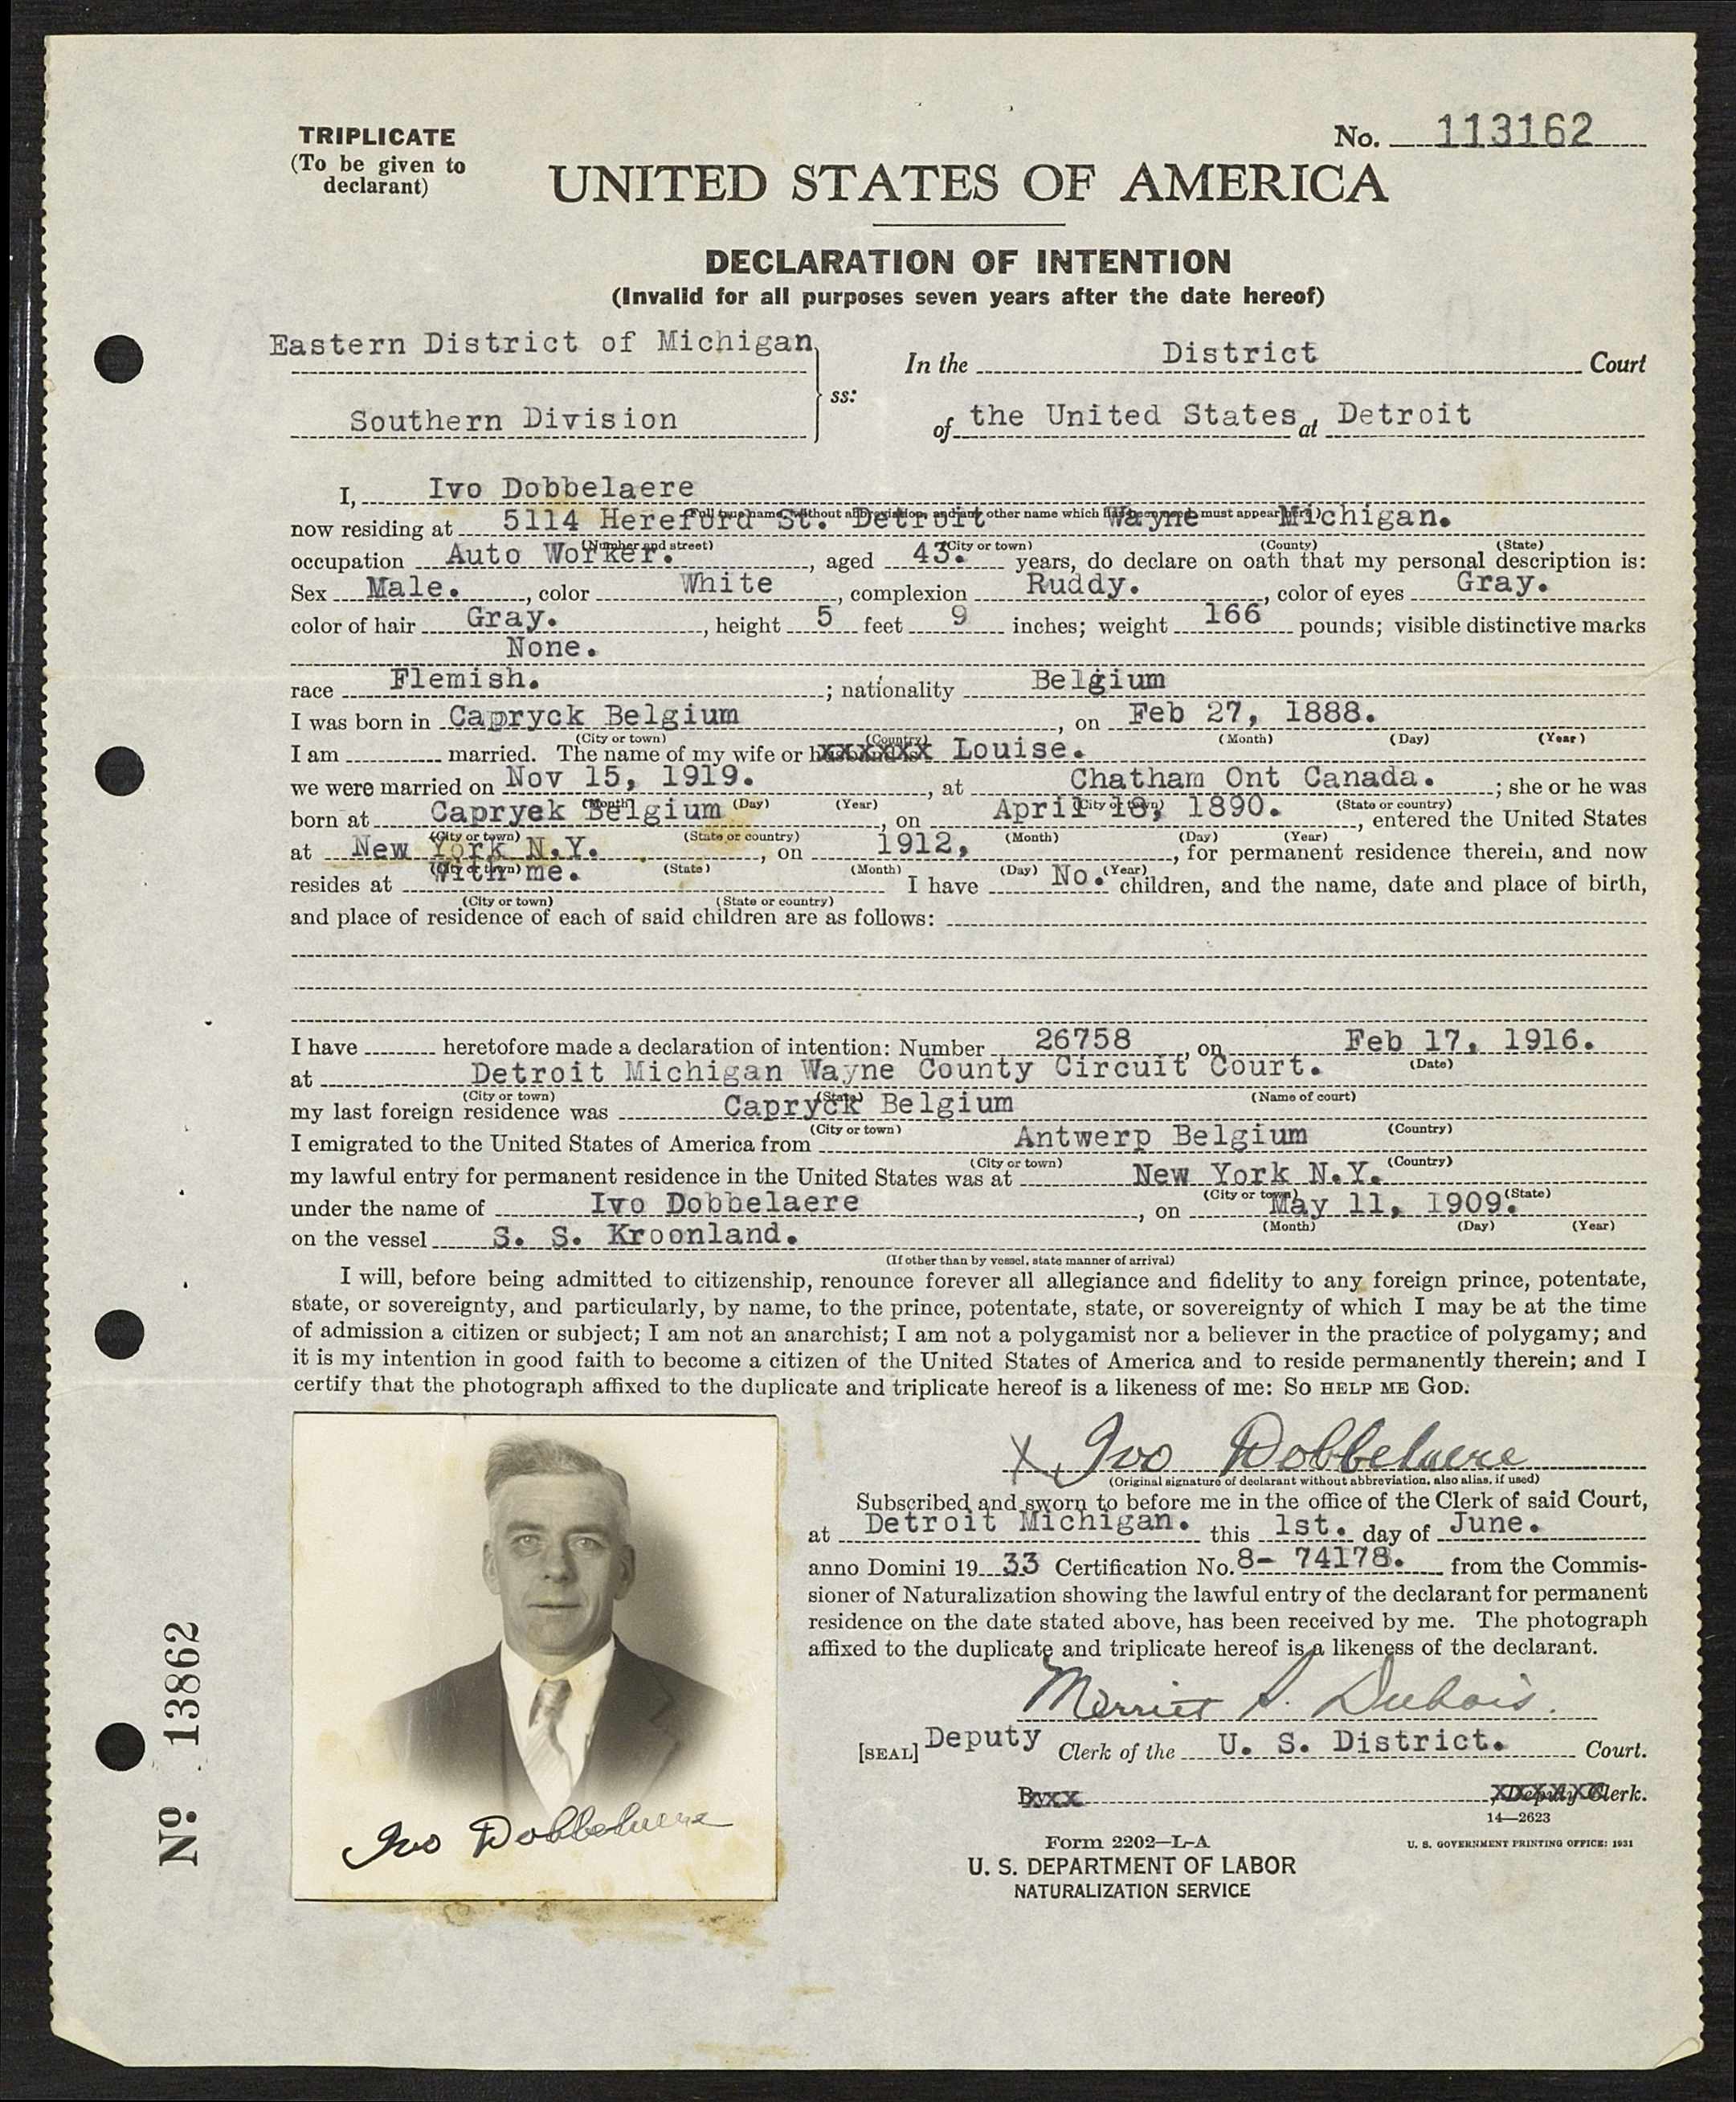 TRIPLICATE
(To be given to
declarant)
No. 113162
UNITED STATES OF AMERICA
DECLARATION OF INTENTION
(Invalid for all purposes seven years after the date hereof)
Eastern District of Michigan
Southern Division
ss:
In the District Court
of the United States at Detroit
I, Ivo Dobbelaere
(Full true name, without abbreviation, and any other name which has been used, must appear here)
now residing at 5114 Hereford St. Detroit Wayne Michigan.
(Number and street) (City or town) (County) (State)
occupation Auto Worker., aged 43. years, do declare on oath that my personal description is:
Sex Male., color White, complexion Ruddy., color of eyes Gray.
color of hair Gray., height 5 feet 9 inches; weight 166 pounds; visible distinctive marks
None.
race Flemish.; nationality Belgium
I was born in Capryck Belgium, on Feb 27, 1888.
(City or town) (Country) (Month) (Day) (Year)
I am married. The name of my wife or husband is Louise.
we were married on Nov 15, 1919., at Chatham Ont Canada.; she or he was
(Month) (Day) (Year) (City or town) (State or country)
born at Capryek Belgium, on April 18, 1890., entered the United States
(City or town) (State or country) (Month) (Day) (Year)
at New York N.Y., on 1912,, for permanent residence therein, and now
(City or town) (State) (Month) (Day) (Year)
resides at With me. I have No. children, and the name, date and place of birth,
(City or town) (State or country)
and place of residence of each of said children are as follows:
I have heretofore made a declaration of intention: Number 26758, on Feb 17, 1916.
(Date)
at Detroit Michigan Wayne County Circuit Court.
(City or town) (State) (Name of court)
my last foreign residence was Capryck Belgium
(City or town) (Country)
I emigrated to the United States of America from Antwerp Belgium
(City or town) (Country)
my lawful entry for permanent residence in the United States was at New York N.Y.
(City or town) (State)
under the name of Ivo Dobbelaere, on May 11, 1909.
(Month) (Day) (Year)
on the vessel S. S. Kroonland.
(If other than by vessel, state manner of arrival)
I will, before being admitted to citizenship, renounce forever all allegiance and fidelity to any foreign prince, potentate,
state, or sovereignty, and particularly, by name, to the prince, potentate, state, or sovereignty of which I may be at the time
of admission a citizen or subject; I am not an anarchist; I am not a polygamist nor a believer in the practice of polygamy; and
it is my intention in good faith to become a citizen of the United States of America and to reside permanently therein; and I
certify that the photograph affixed to the duplicate and triplicate hereof is a likeness of me: SO HELP ME GOD.
X Ivo Dobbelaere
(Original signature of declarant without abbreviation, also alias, if used)
Subscribed and sworn to before me in the office of the Clerk of said Court,
at Detroit Michigan. this 1st. day of June.
anno Domini 19 33 Certification No. 8- 74178. from the Commis-
sioner of Naturalization showing the lawful entry of the declarant for permanent
residence on the date stated above, has been received by me. The photograph
affixed to the duplicate and triplicate hereof is a likeness of the declarant.
Merritt S. Dubois.
[SEAL] Deputy Clerk of the U. S. District. Court.
By xx , Deputy Clerk.
14—2623
Form 2202—L-A
U. S. GOVERNMENT PRINTING OFFICE: 1931
U. S. DEPARTMENT OF LABOR
NATURALIZATION SERVICE
Ivo Dobbelaere
No 13862